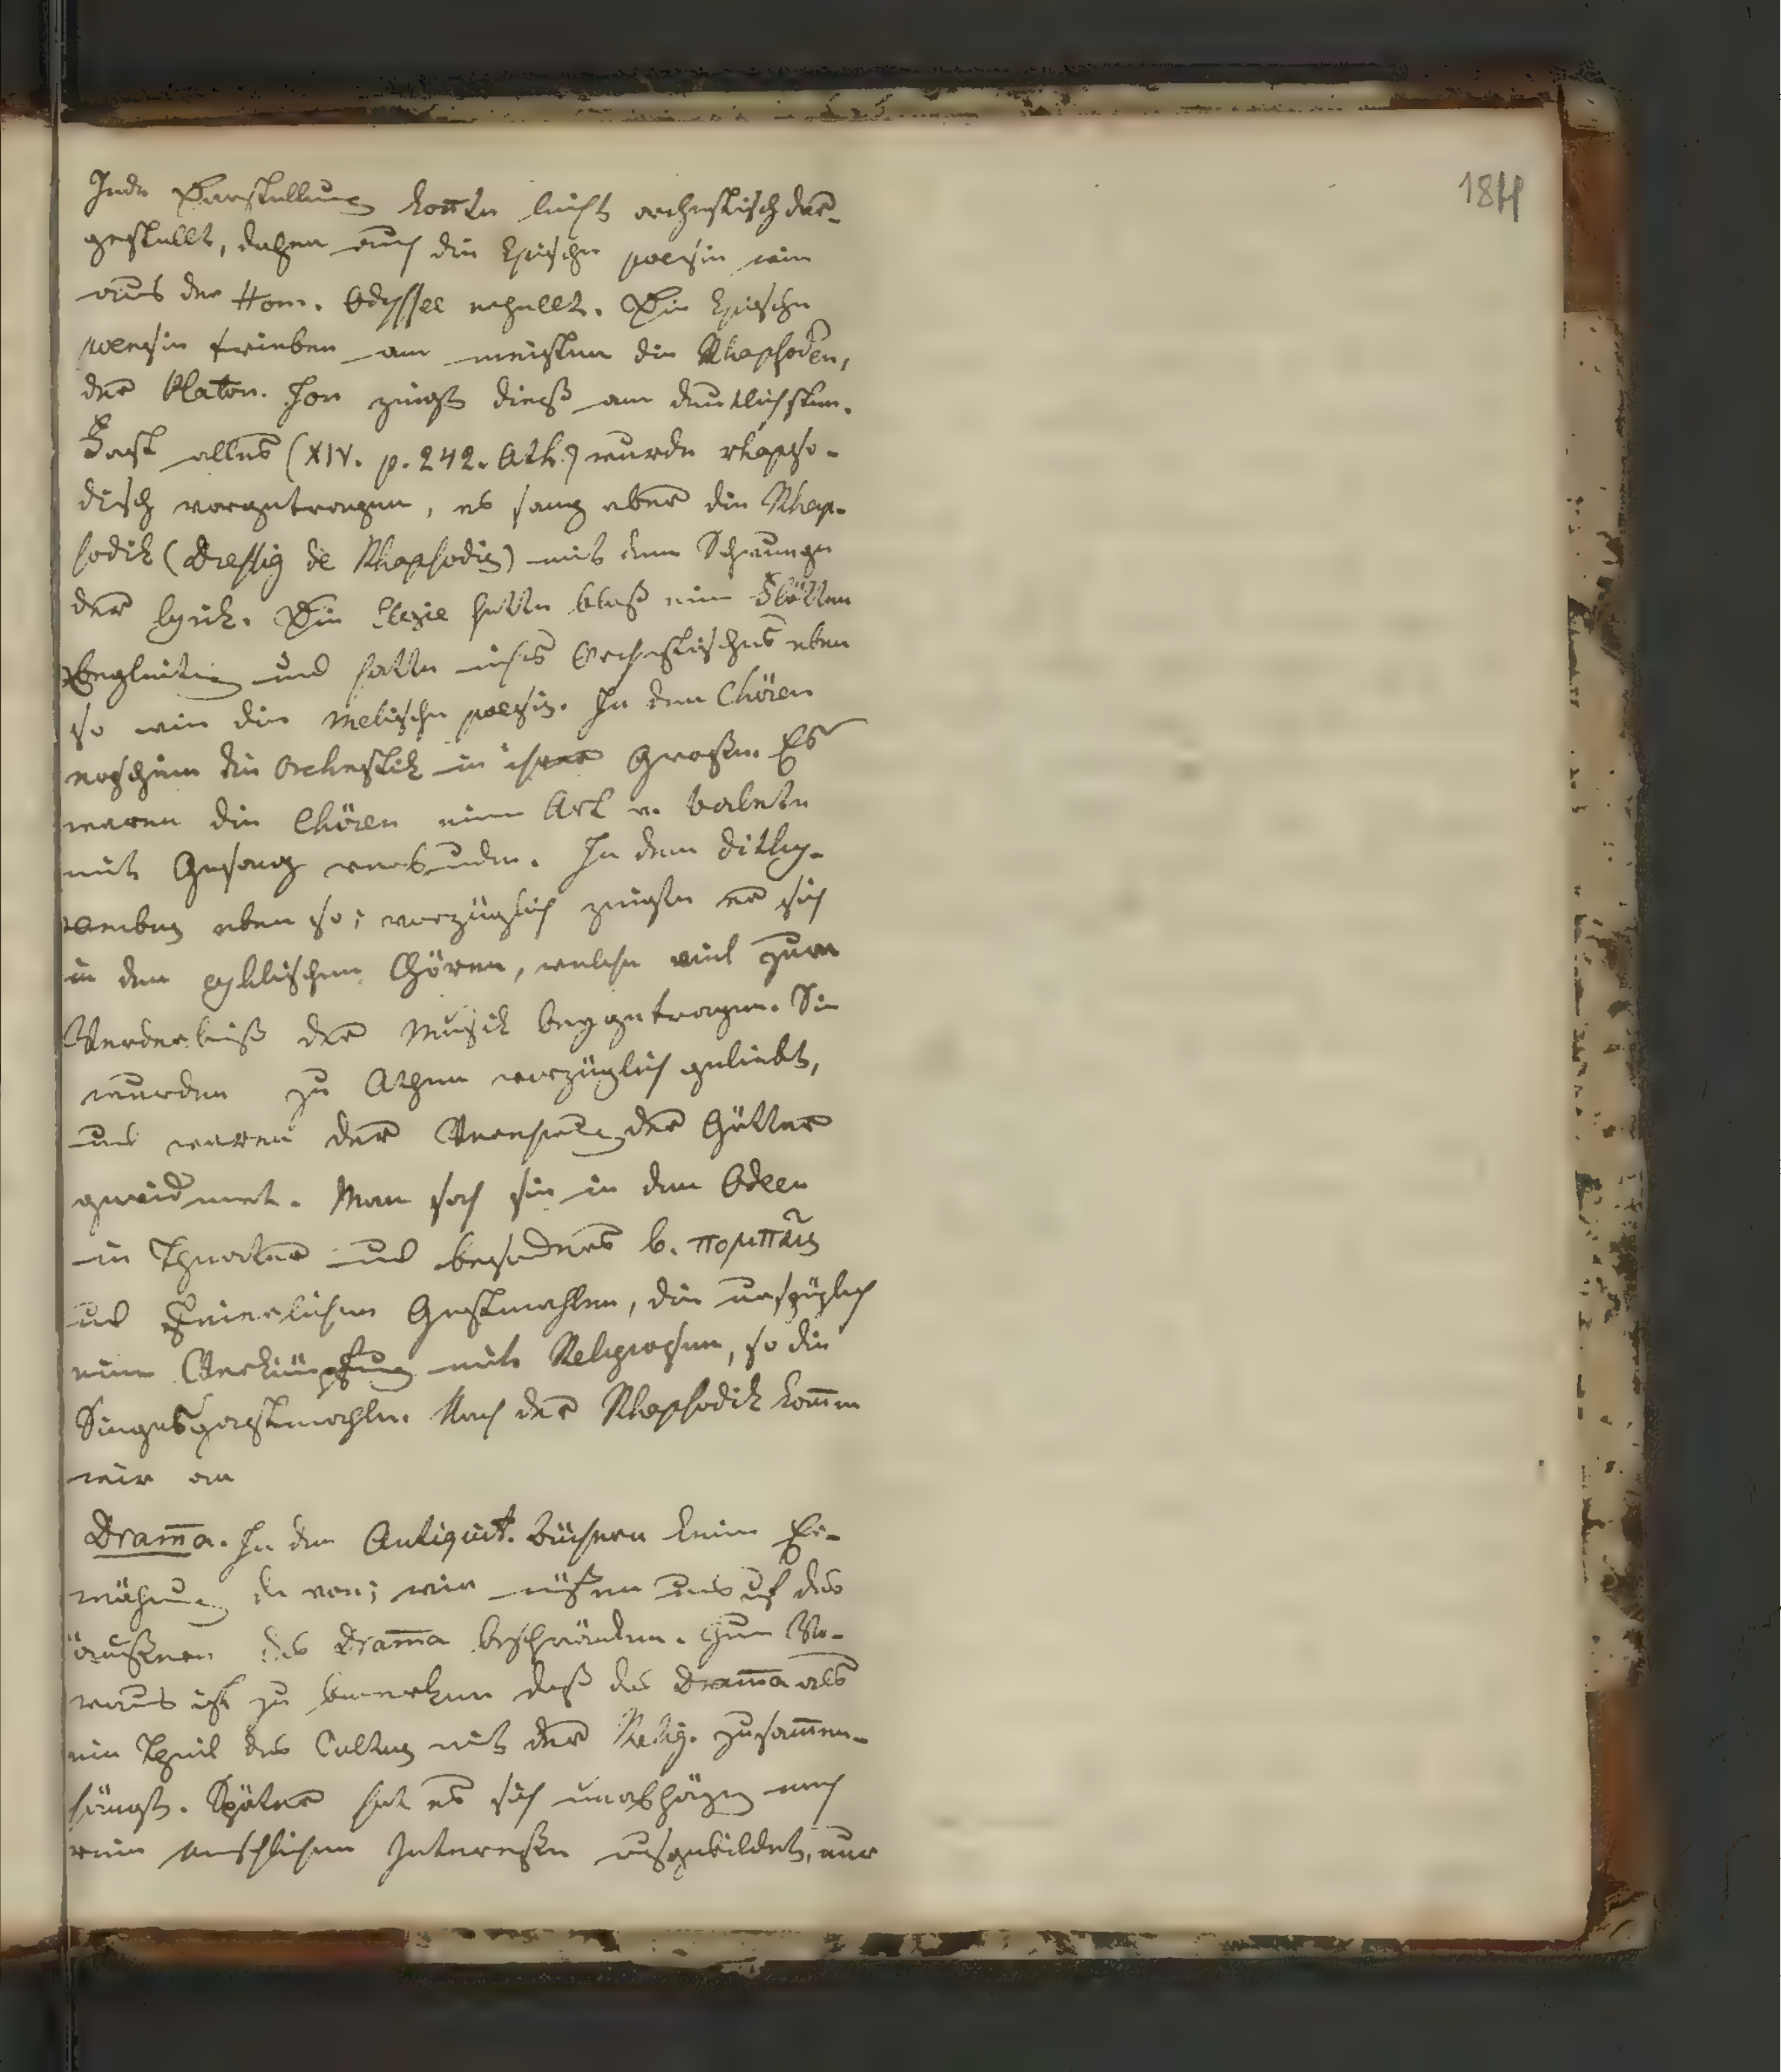 184
Jede Darstellung konte leicht orchestisch dar-
gestellt, daher auch die Epische poesie wie
aus der Hom. Odyssee erhellt. Die Epische
poesie trieben am meisten die Rhapsoden,
der Platon. Jon zeigt dieß am deutlichsten.
Fast alles (XIV. p. 242. Ath.) wurde rhapso-
disch vorgetragen, es sang aber die Rhap-
sodik (Dressig de Rhapsodis) mit dem Schwunge
der Lyrik. Die Elegie hatte bloß eine Flöten
Begleitung und hatte nichts Orchestisches eben
so wie die Melische poesis. In den Chören
erschien die Orchestik in ihrer Großen. Es
waren die Chören eine Art v. Balete
mit Gesang verbunden. In dem dithy-
ramben eben so; vorzüglich zeigte er sich
in den cyklischen Chören, welche viel zum
Verderbniß der Musik beygetragen. Sie
wurden zu Athen vorzüglich geliebt,
und waren der Verehrung der Götter
gewidmet. Man sah sie in den Odeen
in Theater und besonders b. πομπαῖς
und Feierlichen Gastmahlen, die ursprüglich
eine Verknüpfung mit Religiosen, so die
Siegesgastmahle. Nach der Rhapsodik komen
wir an
Drama. In den Antiquit. Büchern keine Er-
wähnung davon; wir müßen uns auf das
äußere des Drama beschränken. Zum Vo-
raus ist zu bemerken daß das Drama als
ein Theil des Cultus mit der Relig. zusamen-
hängt. Später hat es sich unabhägig nach
rein menschlichen Interesse ausgebildet, nur